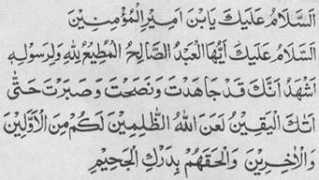 اَلسَّلَامُ عَلَيْكَ يَابْنَ اَمِيْرِ الْمُؤْمِنِيْنَ
اَلسَّلَامُ عَلَيْكَ اَيُّهَا الْعَبْدُ الصَّالِحُ الْمُطِيْعُ لِلّٰهِ وَلِرَسُوْلِهٖ
اَشْهَدُ اَنَّكَ قَدْ جَاهَدْتَ وَنَصَحْتَ وَصَبَرْتَ حَتّٰى
اَتٰكَ الْيَقِيْنُ لَعَنَ اللّٰهُ الظّٰلِمِيْنَ لَكُمْ مِنَ الْاَوَّلِيْنَ
وَالْاٰخِرِيْنَ وَالْحَقَهُمْ بِدَرْكِ الْجَحِيْمِ